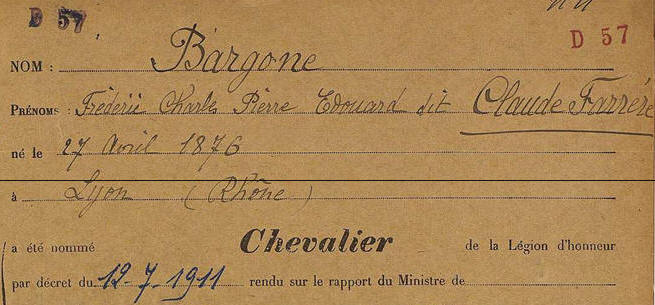 D 57
D 57
NOM : Bargone
PRÉNOMS : Fréderic Charles Pierre Edouard dit Claude Farrère
né le 27 Avril 1876
à Lyon (Rhône)
a été nommé Chevalier de la Légion d'honneur
par décret du 12-7-1911 rendu sur le rapport du Ministre de